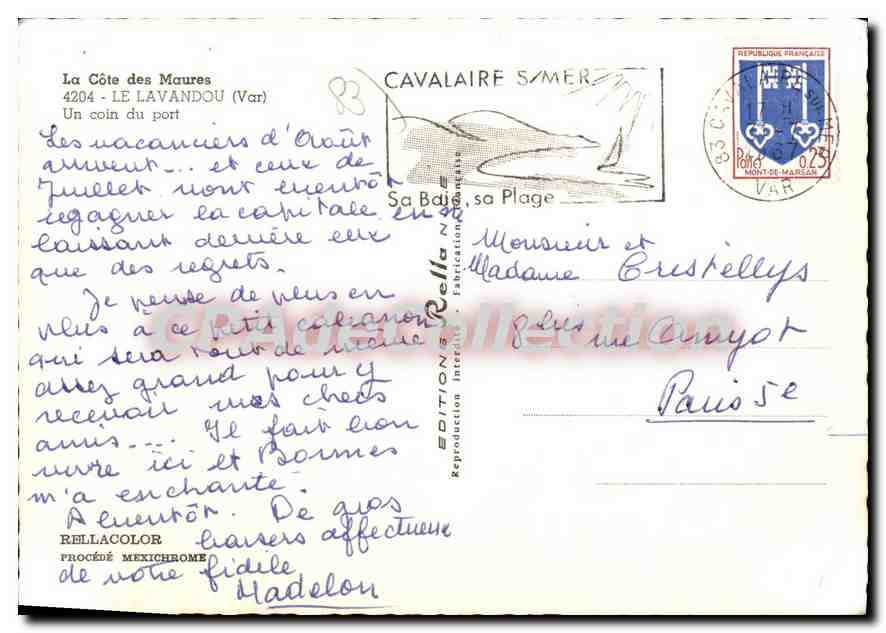 La Côte des Maures
4204 - LE LAVANDOU (Var)
Un coin du port
83
Les vacanciers d'Août
arrivent... et ceux de
Juillet vont bientôt
regagner la capitale en ne
laissant derrière eux
que des regrets.
Je pense de plus en
plus à ce petit cabanon
qui sera tout de même
assez grand pour y
recevoir mes chers
amis.... Il fait bon
vivre ici et Bormes
m'a enchanté.
A bientôt. De gros
baisers affectueux
de votre fidèle
Madelon
RELLACOLOR
PROCÉDÉ MEXICHROME
EDITIONS Rella NICE
Reproduction Interdite - Fabrication Française
CAVALAIRE S/MER
Sa Baie, sa Plage
83 CAVALAIRE SUR MER
17 H
67
VAR
REPUBLIQUE FRANÇAISE
Postes 0.25
MONT-DE-MARSAN
Monsieur et
Madame Cristellys
8 bis rue Amyot
Paris 5e
CPADeCollection